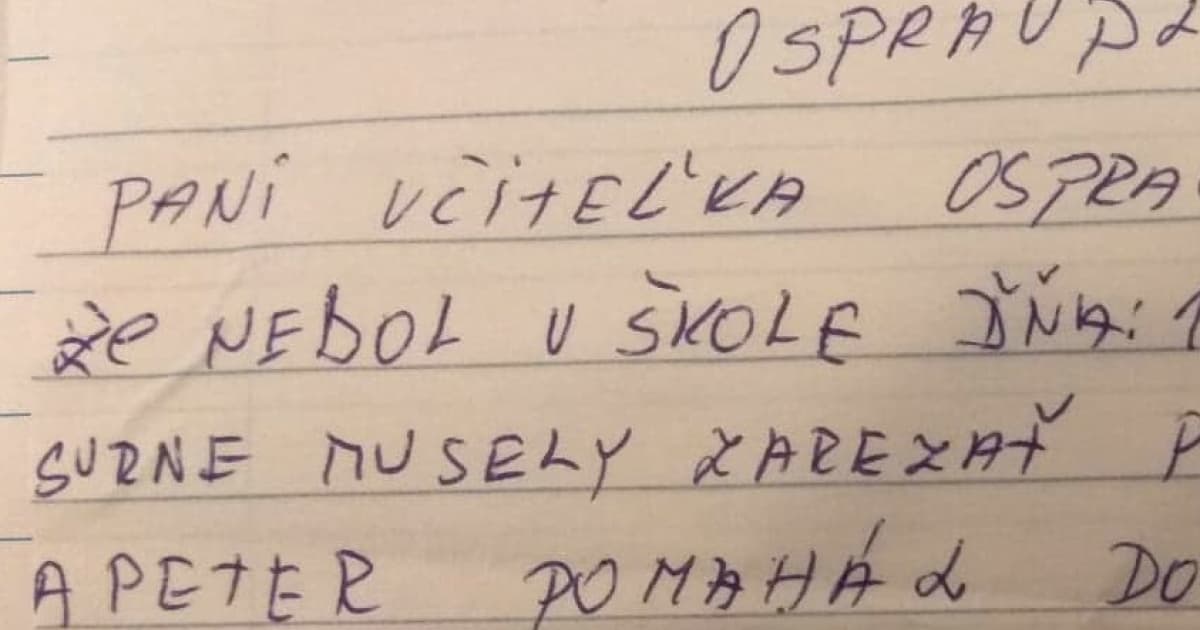 OSPRAVDL
PANI UČITEĽKA OSPRA
ŽE NEBOL V ŠKOLE ĎŇA: 1
SURNE MUSELY ZAREZAŤ P
A PETER POMAHÁL DO